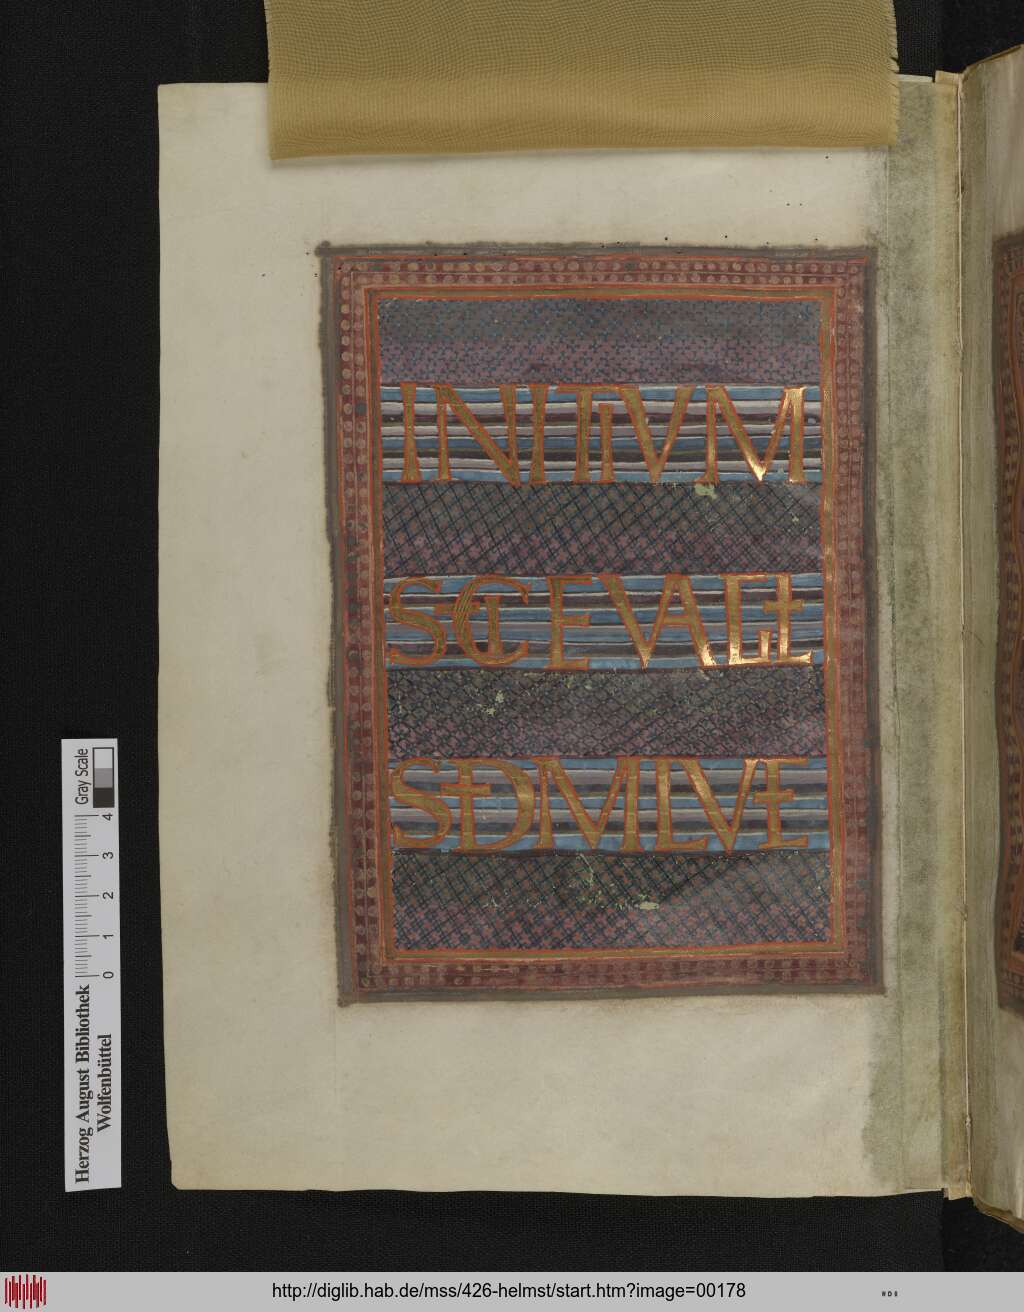 INITIVM
SCI EVAGLI
SEDMLVE
Herzog August Bibliothek
Wolfenbüttel
0 1 2 3 4
Gray Scale
http://diglib.hab.de/mss/426-helmst/start.htm?image=00178